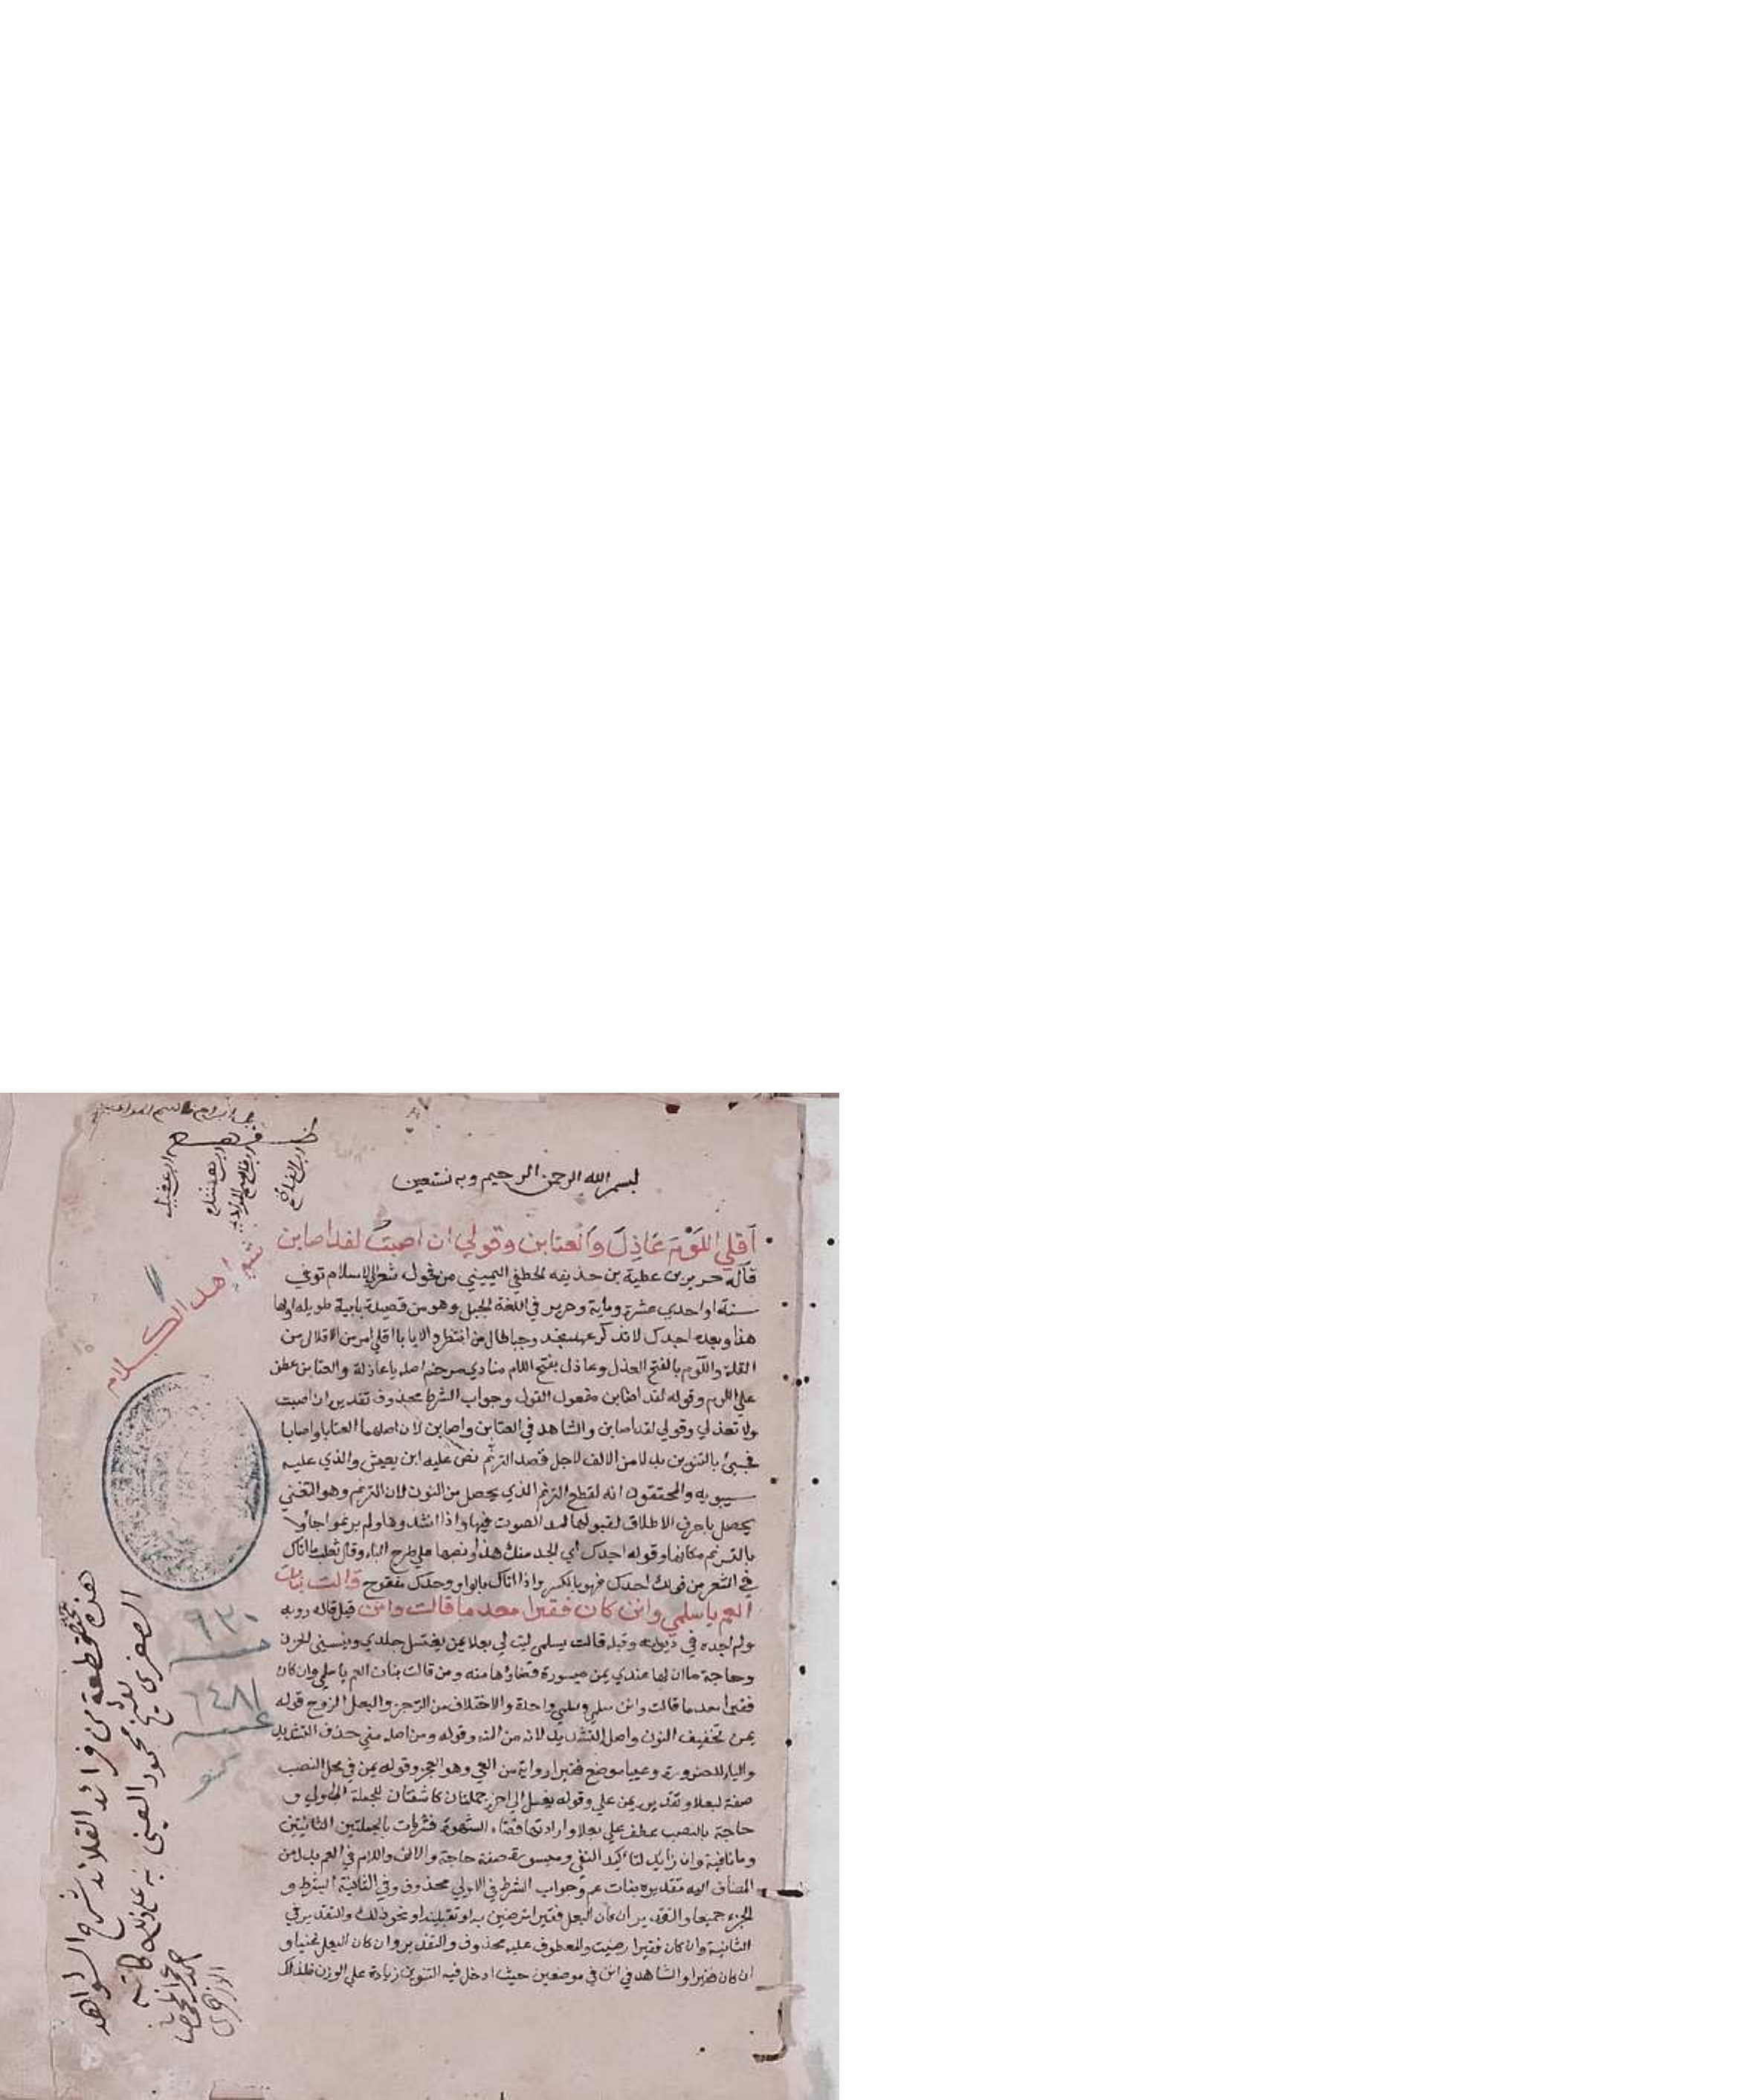 بسم الله الرحمن الرحيم وبه نستعين
أقلي اللوم عاذل والعتابن وقولي ان اصبت لقد اصابن
قاله جرير بن عطية بن حذيفه الخطفي التميمي من فحول شعراء الاسلام توفي
سنة او احدي عشرة وماية وجرير في اللغة الحبل وهو من قصيدة بابية طويله اولها
هذا وبعده اجدك لا تذكر عهد نجد وحيا طال ما انتظروا الايابا اقلي امر من الاقلال من
القلة واللوم بالفتح العذل وعاذل بفتح اللام منادي مرخم اصله ياعاذلة والعتابن عطف
علي اللوم وقوله لقد اصابن مقول القول وجواب الشرط محذوف تقديره ان اصبت
ولا تعذلي وقولي لقد اصابن والشاهد في العتابن واصابن لان اصلهما العتابا واصابا
فجيئ بالتنوين بدلا من الالف لاجل قصد الترنم نص عليه ابن يعيش والذي عليه
سيبويه والمحققون انه لقطع الترنم الذي يحصل من النون لان الترنم وهو التغني
يحصل باحرف الاطلاق لقبولها لمد الصوت فيها واذا انشدوها ولم يرنموا جاؤا
بالترنم مكانها وقوله اجدك اي الجد منك هذا ونصبها علي طرح الباء وقال ثعلب ما اتاك
في الشعر من قولك اجدك فهو بالكسر واذا اتاك بالواو وجدك مفتوح قالت بنات
العم يا سلمي وانن كان فقيرا معدما قالت وانن قيل قاله روبه
ولم اجده في ديوانه وقبله قالت سليمي ليت لي بعلا يمن يغسل جلدي وينسيني الحزن
وحاجة ما ان لها عندي ثمن ميسورة قضاؤها منه ومن قالت بنات العم يا سلمي وان كان
فقيرا معدما قالت وانن سلمي وسليمي واحدة والاختلاف من الرجز والبعل الزوج قوله
يمن تخفيف النون واصله التشديد لانه من المنه وقوله ومن اصله مني حذف التشديد
والياء للضرورة وعييا موضع فقيرا رواية من العي وهو العجز وقوله يمن في محل النصب
صفة لبعلا وتقديره يمن علي وقوله يغسل الي اخره جملتان كاشفتان للجملة الاولي و
حاجة بالنصب عطف علي بعلا وارادت بها قضاء الشهوة فسرت بالجملتين الثانيتين
وما نافية وان زايدة لتاكيد النفي وميسورة صفة حاجة والالف واللام في العم بدل من
المضاف اليه تقديره بنات عم وجواب الشرط في الاولي محذوف وفي الثانية الشرط و
الجزء جميعا والتقدير ان كان البعل فقيرا ترضين به او تقبلينه او نحو ذلك والتقدير في
الثانية وان كان فقيرا رضيت والمعطوف عليه محذوف والتقدير وان كان البعل غنيا و
ان كان فقيرا والشاهد في انن في موضعين حيث ادخل فيه التنوين زيادة علي الوزن فلذلك
ظـ قـ هـ ع
ابن الناظم
ابن هشام
ابن عقيل
شعر اهل الكلام
٩٣٠
٦٤٨١
هذه قطعة من فرائد القلائد شرح الشواهد
الصغري للشيخ محمود العيني
كاتبه
الازهري